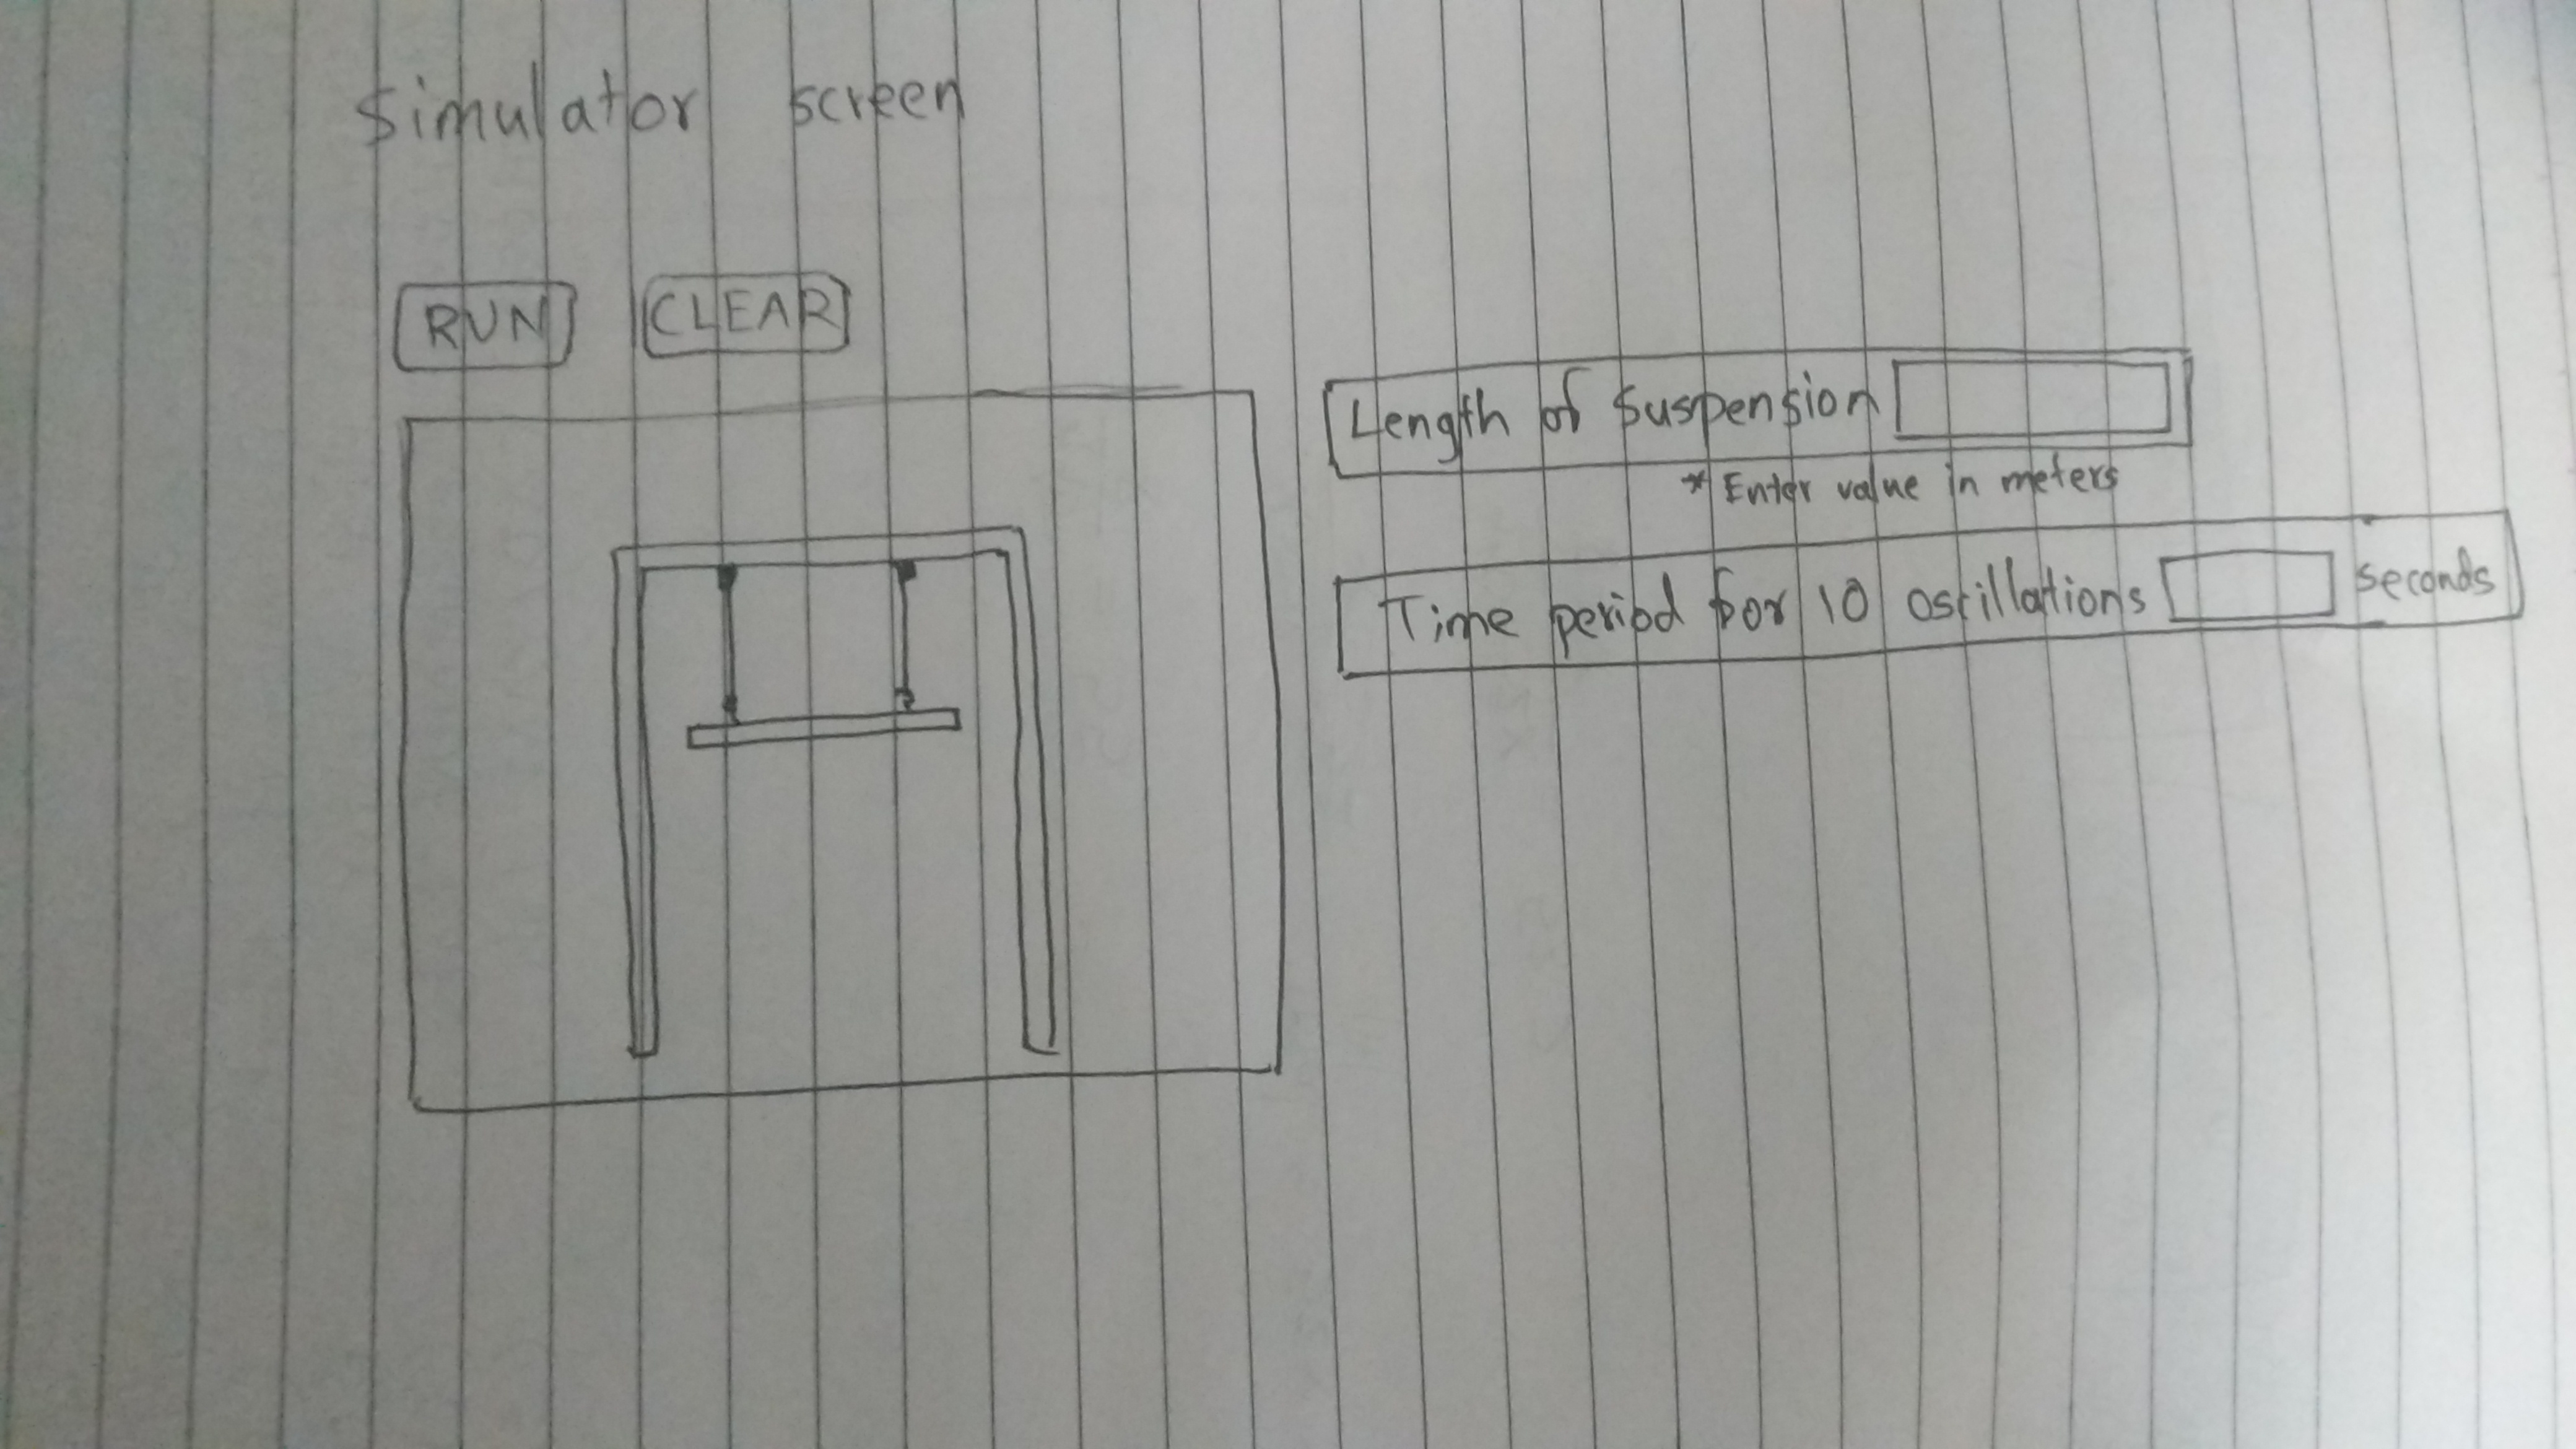 Simulator screen
RUN CLEAR
Length of Suspension
* Enter value in meters
Time period for 10 oscillations seconds